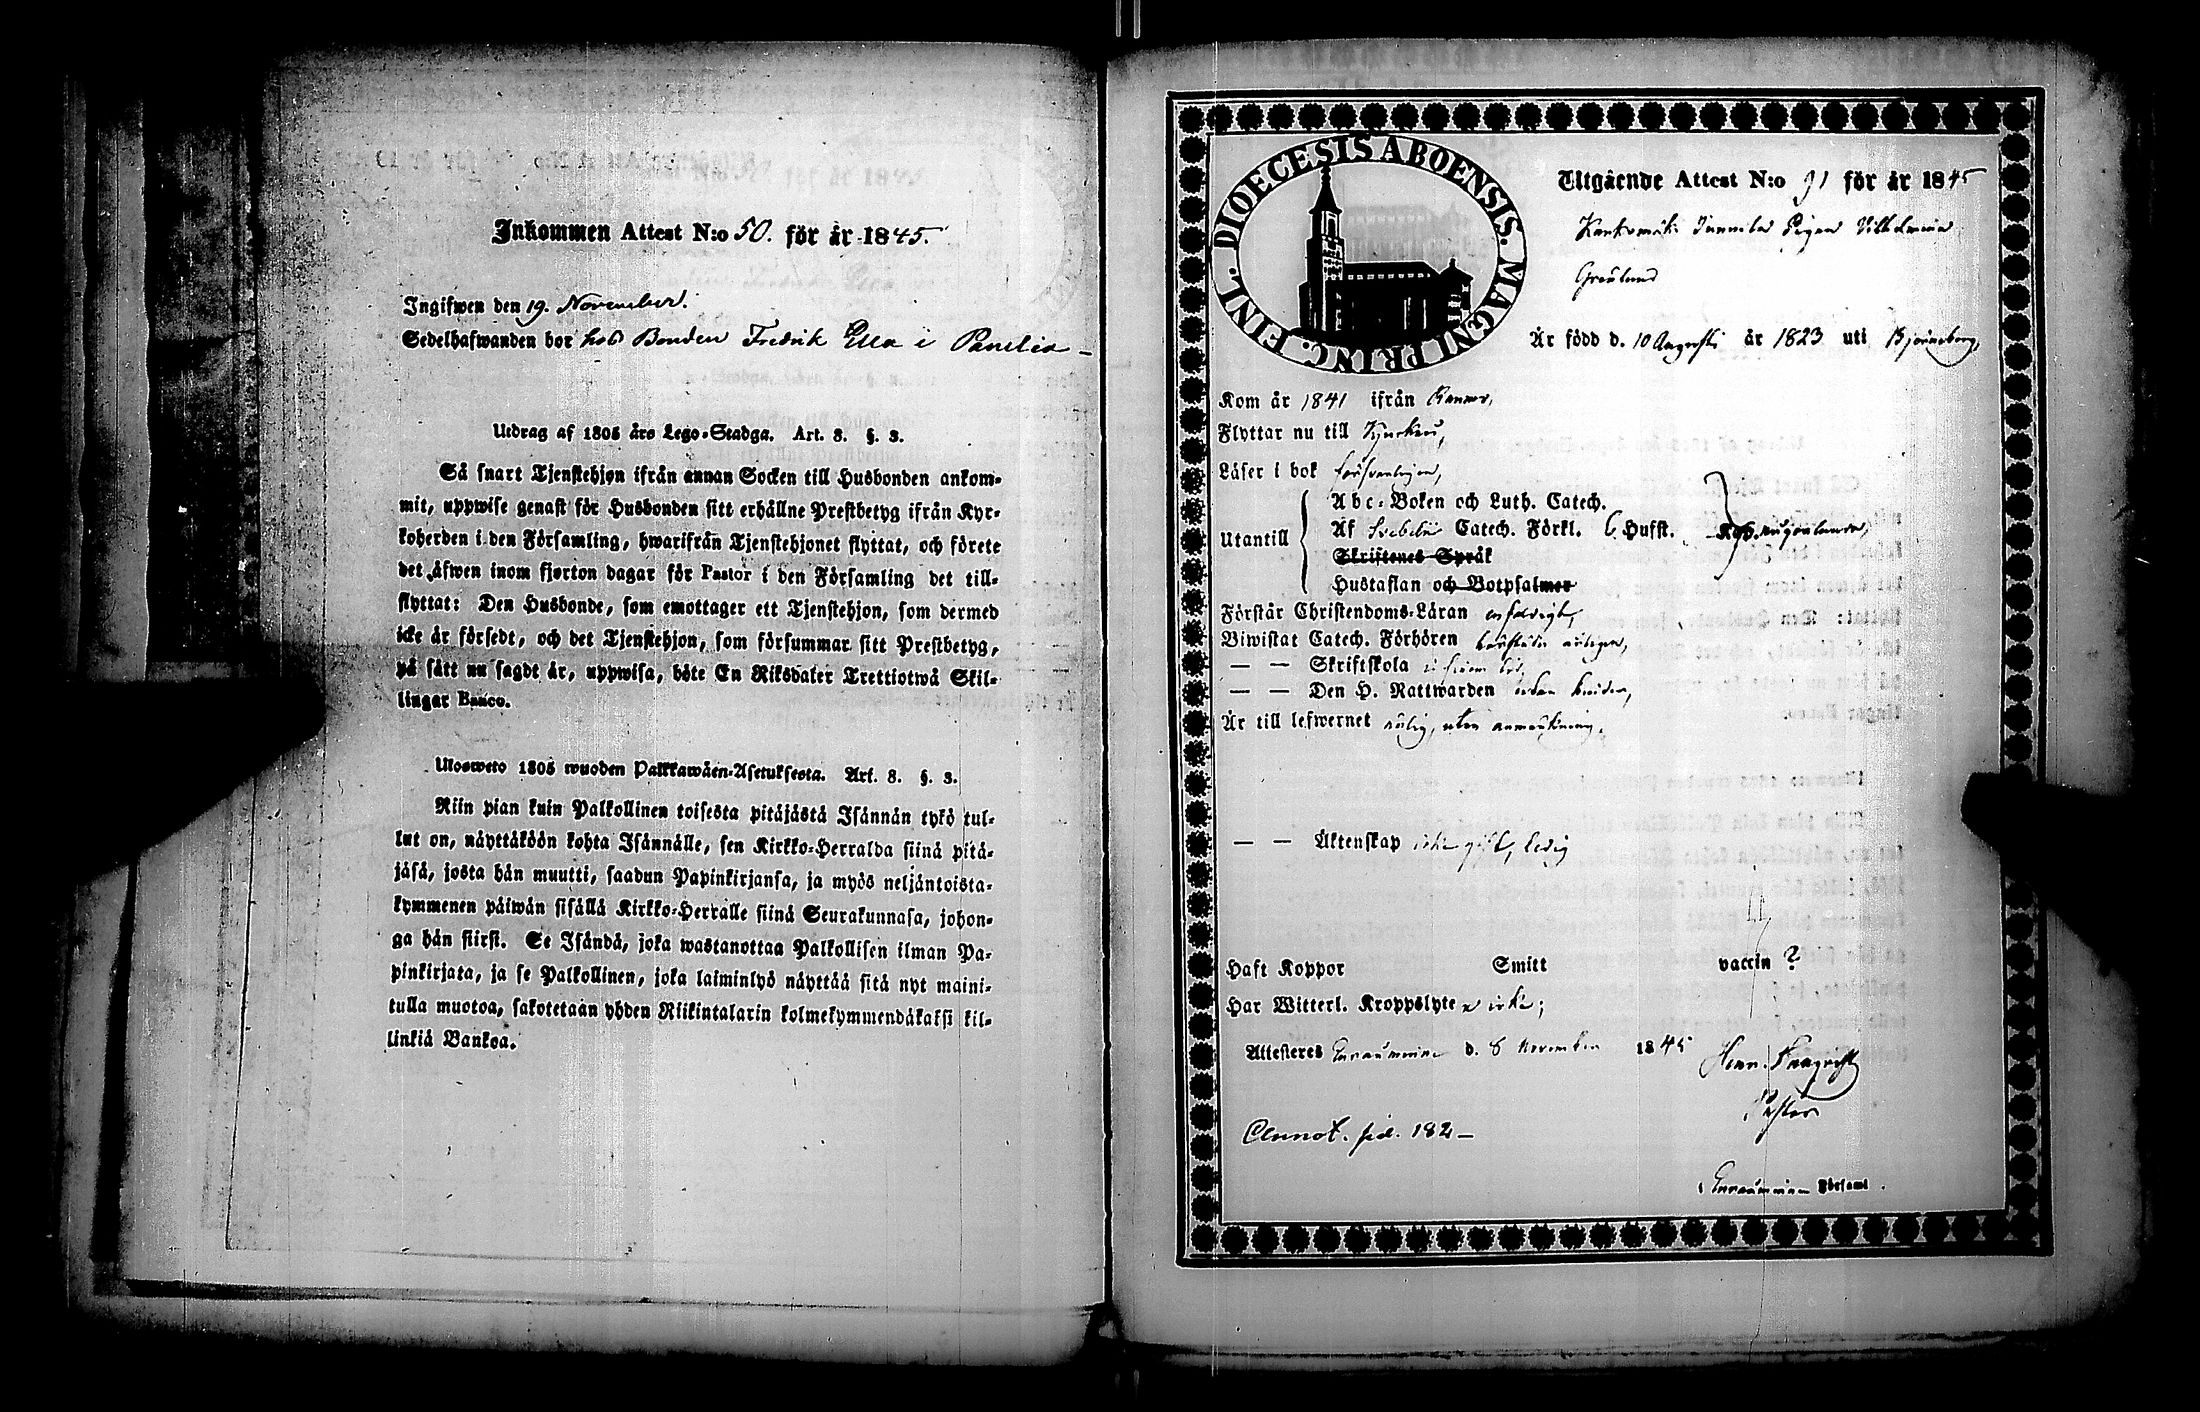 Inkommen Attest N:o 50. för år 1845.
Ingifwen den 19. November.
Sedelhafwanden bor hos Bonden Fredrik Ella i Panelia –
Utdrag af 1805 års Lego-Stadga. Art. 8. §. 3.
Så snart Tjenstehjon ifrån annan Socken till Husbonden ankom-
mit, uppwise genast för Husbonden sitt erhållne Prestbetyg ifrån Kyr-
koherden i den Församling, hwarifrån Tjenstehjonet flyttat, och förete
det äfwen inom fjorton dagar för Pastor i den Församling det till-
flyttat: Den Husbonde, som emottager ett Tjenstehjon, som dermed
icke är försedt, och det Tjenstehjon, som försummar sitt Prestbetyg,
på sätt nu sagdt är, uppwisa, böte En Riksdaler Trettiotwå Skil-
lingar Banco.
Ulosweto 1805 wuoden Palkkawäen-Asetuksesta. Art. 8. §. 3.
Niin pian kuin Palkollinen toisesta pitäjästä Isännän tykö tul-
lut on, näyttäköön kohta Isännälle, sen Kirkko-Herralda siinä pitä-
jäsä, josta hän muutti, saadun Papinkirjansa, ja myös neljäntoista-
kymmenen päiwän sisällä Kirkko-Herralle siinä Seurakunnasa, johon-
ga hän siirsi. Se Isändä, joka wastanottaa Palkollisen ilman Pa-
pinkirjata, ja se Palkollinen, joka laiminlyö näyttää sitä nyt maini-
tulla muotoa, sakotetaan yhden Riikintalarin kolmekymmendäkaksi kil-
linkiä Bankoa.
FINL. DIOECESIS ABOENSIS. MAGNI PRINC.
Utgående Attest N:o 91 för år 1845
Pigan Vilhelmina
Grönlund
Är född d. 10 Augusti år 1823 uti Björneborg,
Kom år 1841 ifrån
Flyttar nu till
Läser i bok försvarligen,
Utantill
Abc-Boken och Luth. Catech.
Af Svebelii Catech. Förkl. 6 Hufst.
Skriftenes Språk
Hustaflan och Botpsalmer
Förstår Christendoms-Läran enfaldigt,
Biwistat Catech. Förhören
— — Skriftskola
— — Den H. Nattwarden
Är till lefwernet ärlig, utan anmärkning.
— — Äktenskap icke gift, ledig
Haft Koppor Smitt vaccin ?
Har Witterl. Kroppslyte icke;
Attesteres Euraåminne d. 8 November 1845
Pastor
Annot. pid. 182 –
Euraåminne Församl.